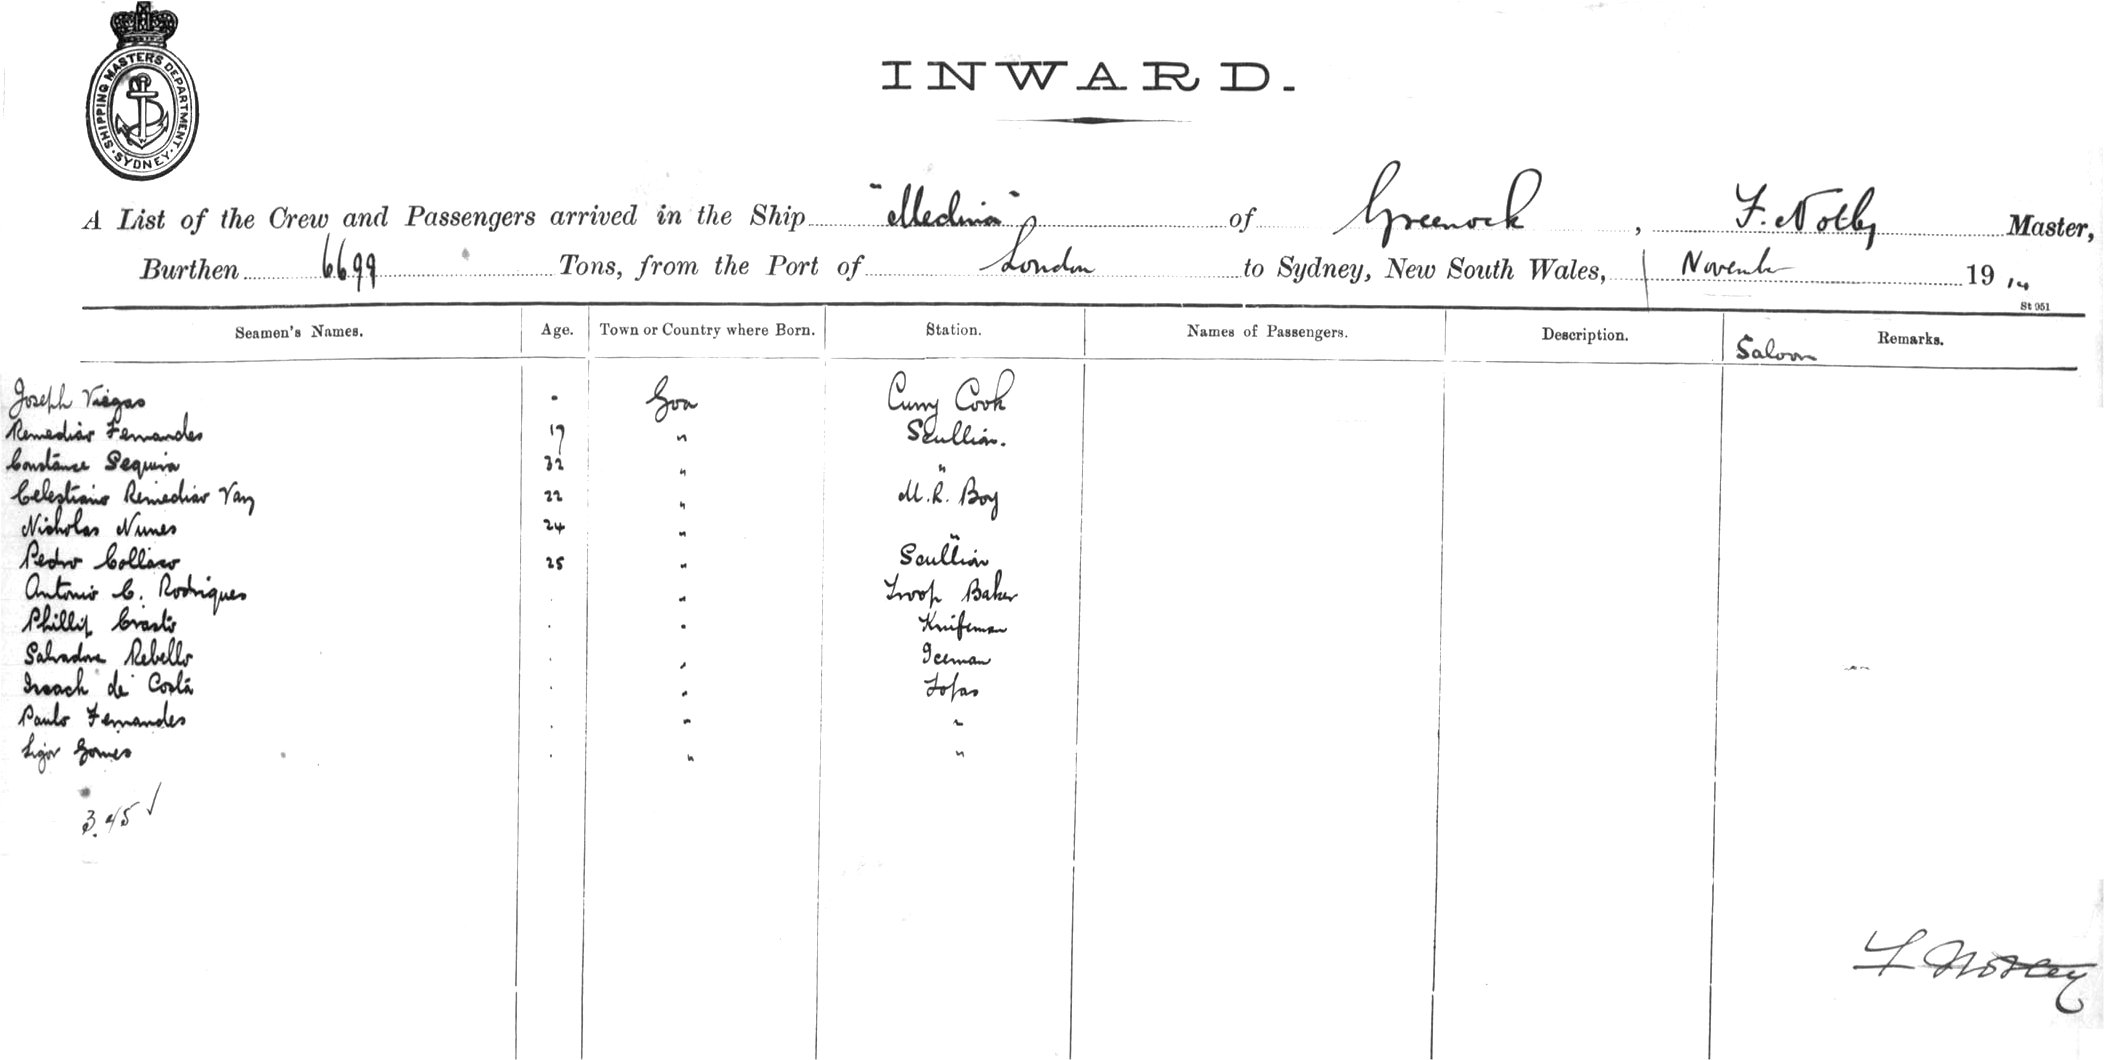 SHIPPING MASTERS DEPARTMENT · SYDNEY ·
INWARD.
A List of the Crew and Passengers arrived in the Ship "Medina" of Greenock, F. Notley Master,
Burthen 6699 Tons, from the Port of London to Sydney, New South Wales, November 1914
St 951
Seamen's Names. Age. Town or Country where Born. Station. Names of Passengers. Description. Remarks.
Saloon
Joseph Viegas " Goa Curry Cook
Remedias Fernandes 19 " Scullion.
Constance Sequira 32 " "
Celestiano Remedias Vaz 22 " M.R. Boy
Nicholas Nunes 24 " "
Pedro Collaso 25 " Scullion
Antonio C. Rodrigues " Troop Baker
Phillip Crasto " Knifeman
Salvadore Rebello " Iceman
de Costa " Topas
Paulo Fernandes " "
Gomes " "
F Notley